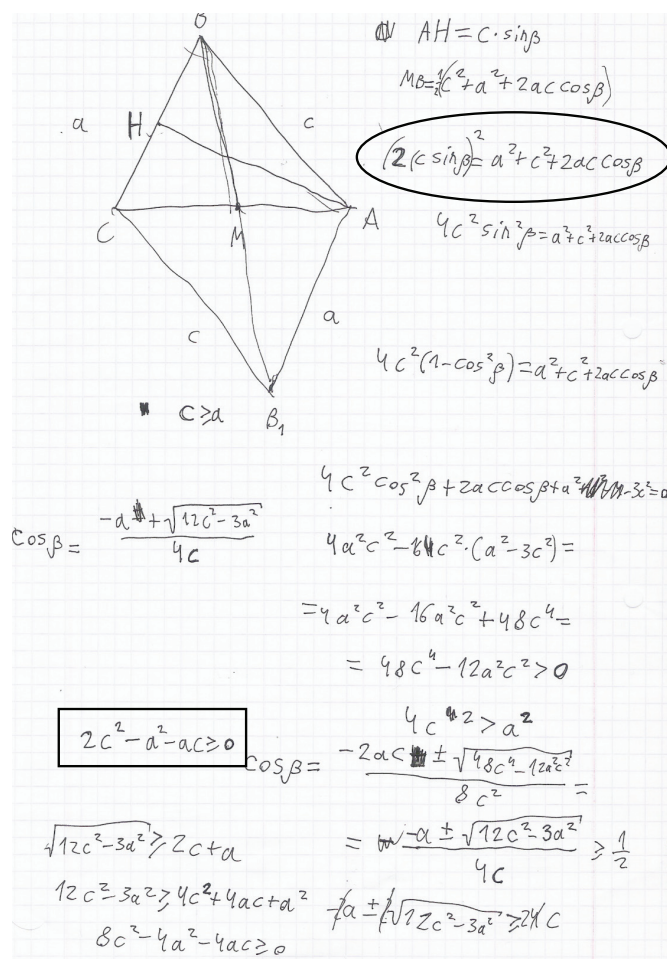 B
AH = c·sinβ
MB=½(c²+a²+2ac cosβ)
a H c
(2(c sinβ)²=a²+c²+2ac cosβ
C M A
4c² sin²β=a²+c²+2accosβ
c a
4c²(1-cos²β)=a²+c²+2accosβ
c≥a B₁
4c²cos²β+2accosβ+a²-3c²=0
cosβ = (-a+√(12c²-3a²))/(4c)
4a²c²-16c²·(a²-3c²)=
=4a²c²-16a²c²+48c⁴=
= 48c⁴-12a²c²>0
4c²>a²
2c²-a²-ac≥0
cosβ= (-2ac ± √(48c⁴-12a²c²))/(8c²) =
√(12c²-3a²)≥2c+a
= (-a ± √(12c²-3a²))/(4c) ≥ 1/2
12c²-3a²≥4c²+4ac+a²
-a ± √(12c²-3a²)≥2c
8c²-4a²-4ac≥0